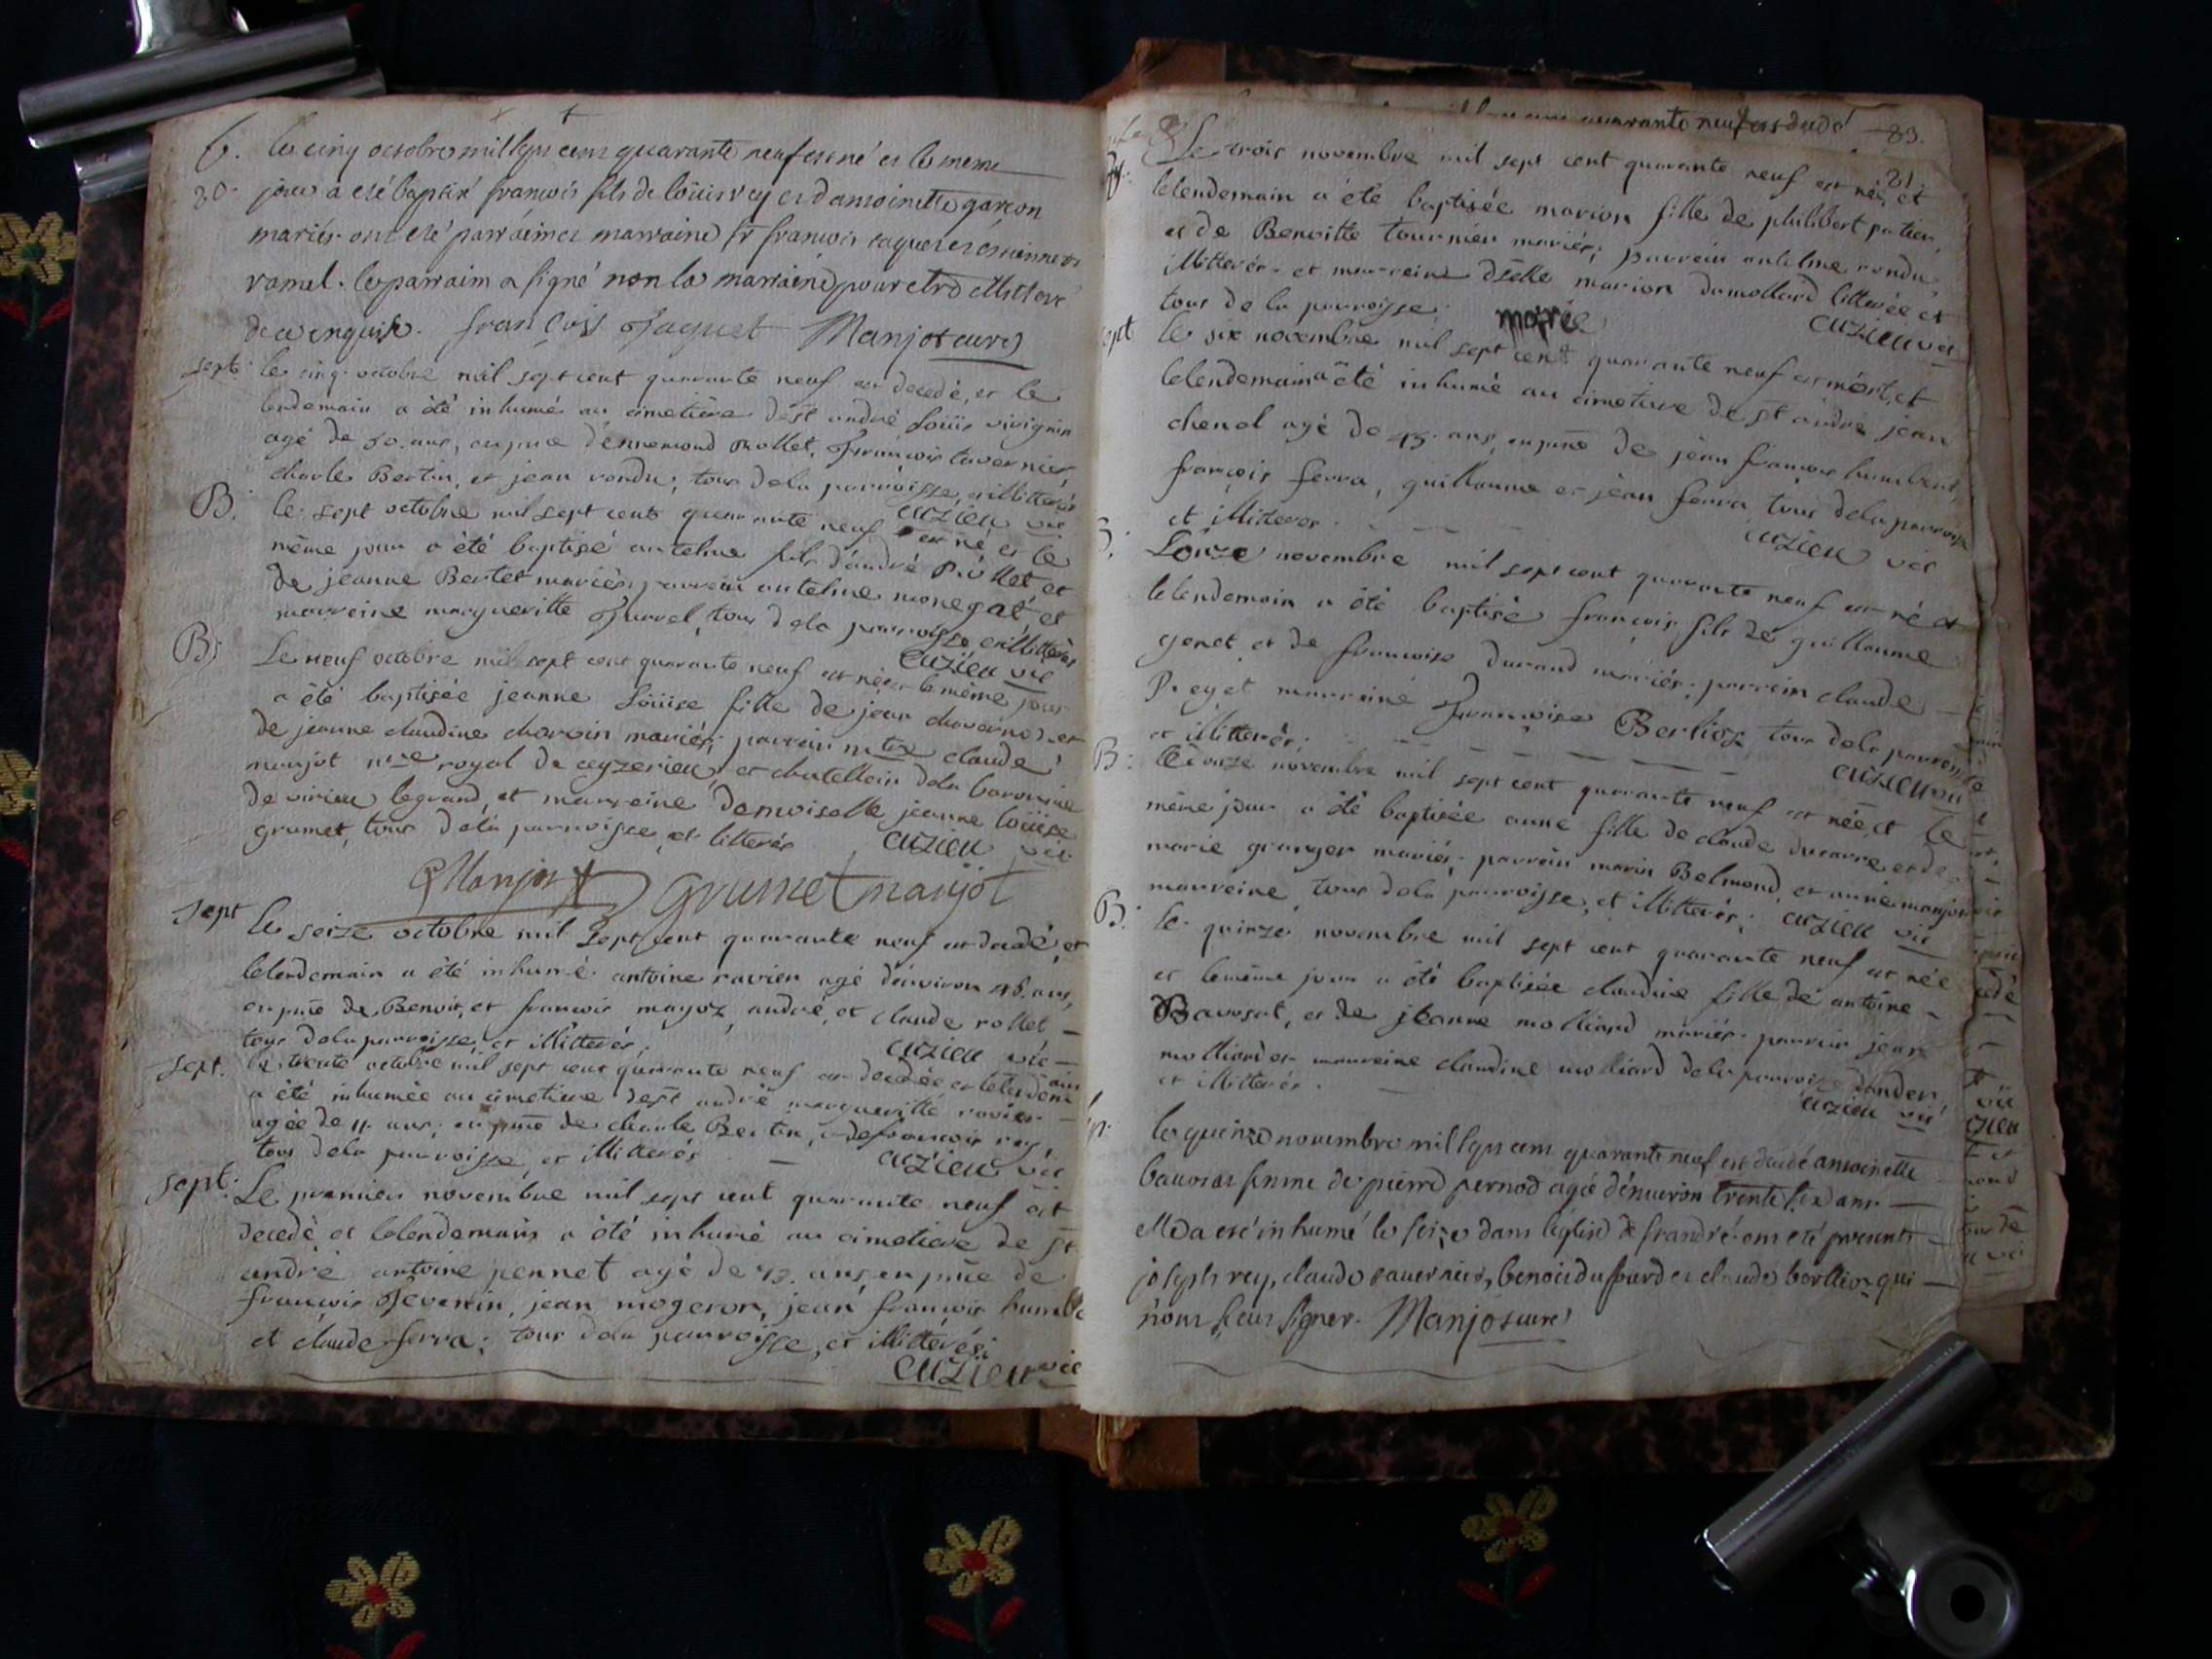 B. le cinq octobre mil sept cens quarante neuf est né et le meme
80. jour a eté baptisé francois fils de loüis rey et d'antoinette garcon
mariés ont eté parraim et marraine sr francois jaquet et
ramel. le parraim a signé non la marraine pour etre illiteré
de ce enquise. françois Jaquet Manjot curé
sept. le cinq octobre mil sept cent quarante neuf est decedé, et le
lendemain a été inhumé au cimetière de st andré Loüis
agé de 50. ans, en pnce d'ennemond Rollet, françois tavernier,
charle Bertin, et jean rondu; tous dela parroisse, et illitterés
cuzieu vic
B. le sept octobre mil sept cent quarante neuf est né et le
même jour a été baptisé antelme fils d'andré Rollet et
de jeanne Bertet mariés; parrein antelme monegat, et
marreine margueritte Jurrel, tous dela parroisse et illitterés
cuzieu vic
B. Le neuf octobre mil sept cent quarante neuf est née et le même jour
a été baptisée jeanne Loüise fille de jean et
de jeanne claudine charvin mariés; parrein mtre claude
manjot nre royal de ceyzerieu, et chatellain dela baronnie
de virieu legrand, et marreine demoiselle jeanne loüise
grumet, tous dela parroisse et litterés cuzieu vic
CManjot grumet manjot
sept le seize octobre mil sept cent quarante neuf est decedé, et
lelendemain a été inhumé antoine ravier agé d'environ 46. ans,
en pnce de Benoit, et francois mayoz, andré, et claude rollet
tous dela parroisse, et illitterés; cuzieu vic
sept. le trente octobre mil sept cent quarante neuf est decedée et lelendemain
a été inhumée au cimetiere de st andré margueritte ravier
agée de 11. ans; en pnce de charle Bertin, et de francois rey,
tous dela parroisse, et illitterés cuzieu vic
sept. Le premier novembre mil sept cent quarante neuf est
decedé et lelendemain a été inhumé au cimetiere de st
andré antoine pennet agé de 43. ans en pnce de
francois Jevenin, jean mogeron, jean francois humbert
et claude ferra; tous dela parroisse, et illitterés;
cuzieu vic
quarante neuf est decedé
83.
81.
Le trois novembre mil sept cent quarante neuf est née, et
lelendemain a été baptisée marion fille de philibert patier,
et de Benoitte tournier mariés; parrein antelme rondu
illitterés. et marreine dselle marion dumollard litterée et
tous de la parroisse. cuzieu vic
sept le six novembre mil sept cent quarante neuf est mort, et
lelendemain a été inhumé au cimetiere de st andré jean
chenol agé de 45. ans, en pnce de jean francois humbert,
françois ferra, guillaume et jean ferra tous dela parroisse
et illitterés. cuzieu vic
B. L'onze novembre mil sept cent quarante neuf est né et
lelendemain a été baptisé françois fils de guillaume
genet et de francoise durand mariés; parrein claude
Reyet marreine francoise Berlioz tous dela parroisse
et illitterés; cuzieu vic
B. novembre mil sept cent quarante neuf est née, et le
même jour a été baptisée anne fille de claude ducarre et de
marie granger mariés; parrein marin Belmond, et anne manjot
marreine tous dela parroisse, et illitterés; cuzieu vic
B. le quinze novembre mil sept cent quarante neuf est née
et lemême jour a été baptisée claudine fille de antoine
Bavosat, et de jeanne molliard mariés. parrein jean
molliard et marreine claudine molliard dela parroisse d'andert,
et illitterés. cuzieu vic
le quinze nouembre mil sept cens quarante neuf est decedé antoinette
bauosat femme de pierre pernod agée d'enuiron trente six ans
elle a eté inhumé le seize dans l'eglise de st andré. ont eté presents
joseph rey, claude tauernier, benoit dufour et claude berllioz qui
n'ont sceu signer. Manjot curé